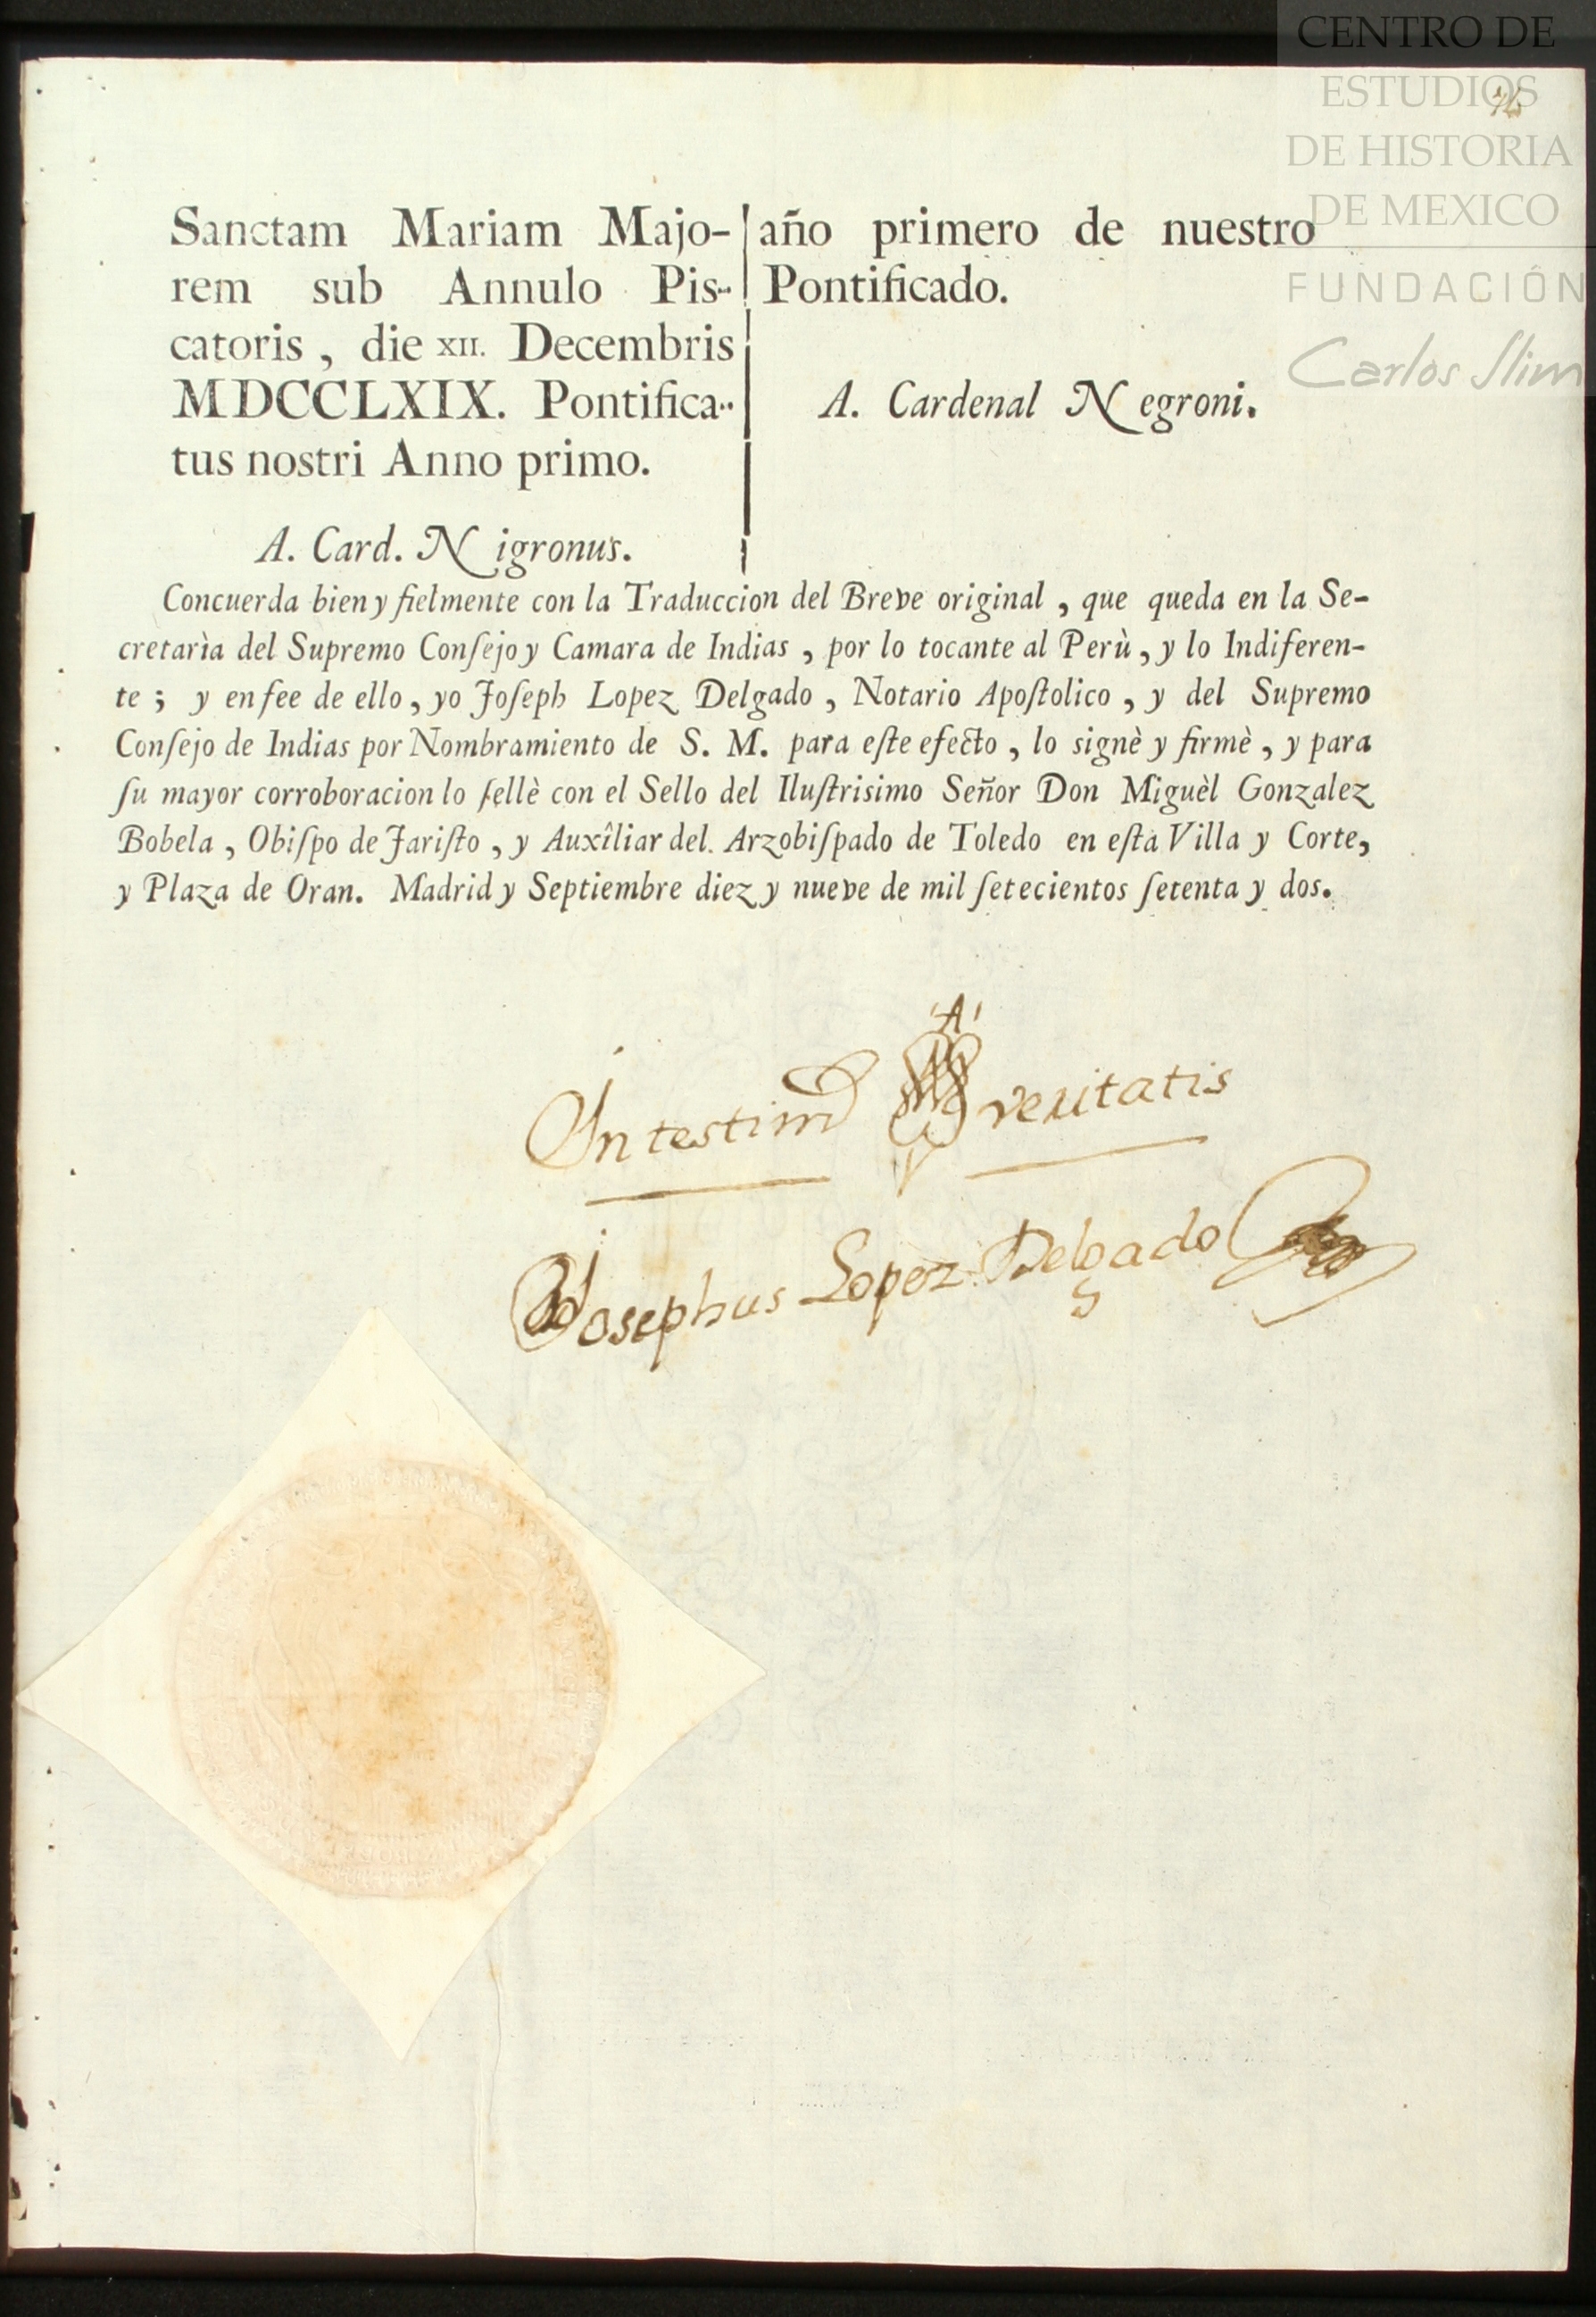 CENTRO DE
ESTUDIOS
DE HISTORIA
DE MEXICO
FUNDACIÓN
Carlos Slim
Sanctam Mariam Majo-
rem sub Annulo Pis-
catoris, die XII. Decembris
MDCCLXIX. Pontifica-
tus nostri Anno primo.
A. Card. Nigronus.
año primero de nuestro
Pontificado.
A. Cardenal Negroni.
Concuerda bien y fielmente con la Traduccion del Breve original, que queda en la Se-
cretarìa del Supremo Conſejo y Camara de Indias, por lo tocante al Perù, y lo Indiferen-
te; y en fee de ello, yo Joſeph Lopez Delgado, Notario Apoſtolico, y del Supremo
Conſejo de Indias por Nombramiento de S. M. para eſte efecto, lo signè y firmè, y para
ſu mayor corroboracion lo ſellè con el Sello del Iluſtrisimo Señor Don Miguèl Gonzalez
Bobela, Obiſpo de Jariſto, y Auxîliar del. Arzobiſpado de Toledo en eſta Villa y Corte,
y Plaza de Oran. Madrid y Septiembre diez y nueve de mil ſetecientos ſetenta y dos.
In testimo veritatis
Josephus Lopez Delgado